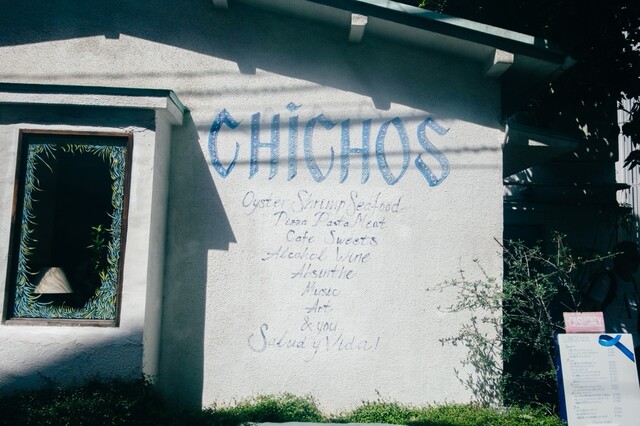 CHiCHOS
Oyster Shrimp Seafood
Pizza Pasta Meat
Cafe Sweets
Alcohol Wine
Absinthe
Music
Art
& you
Salud y Vida!